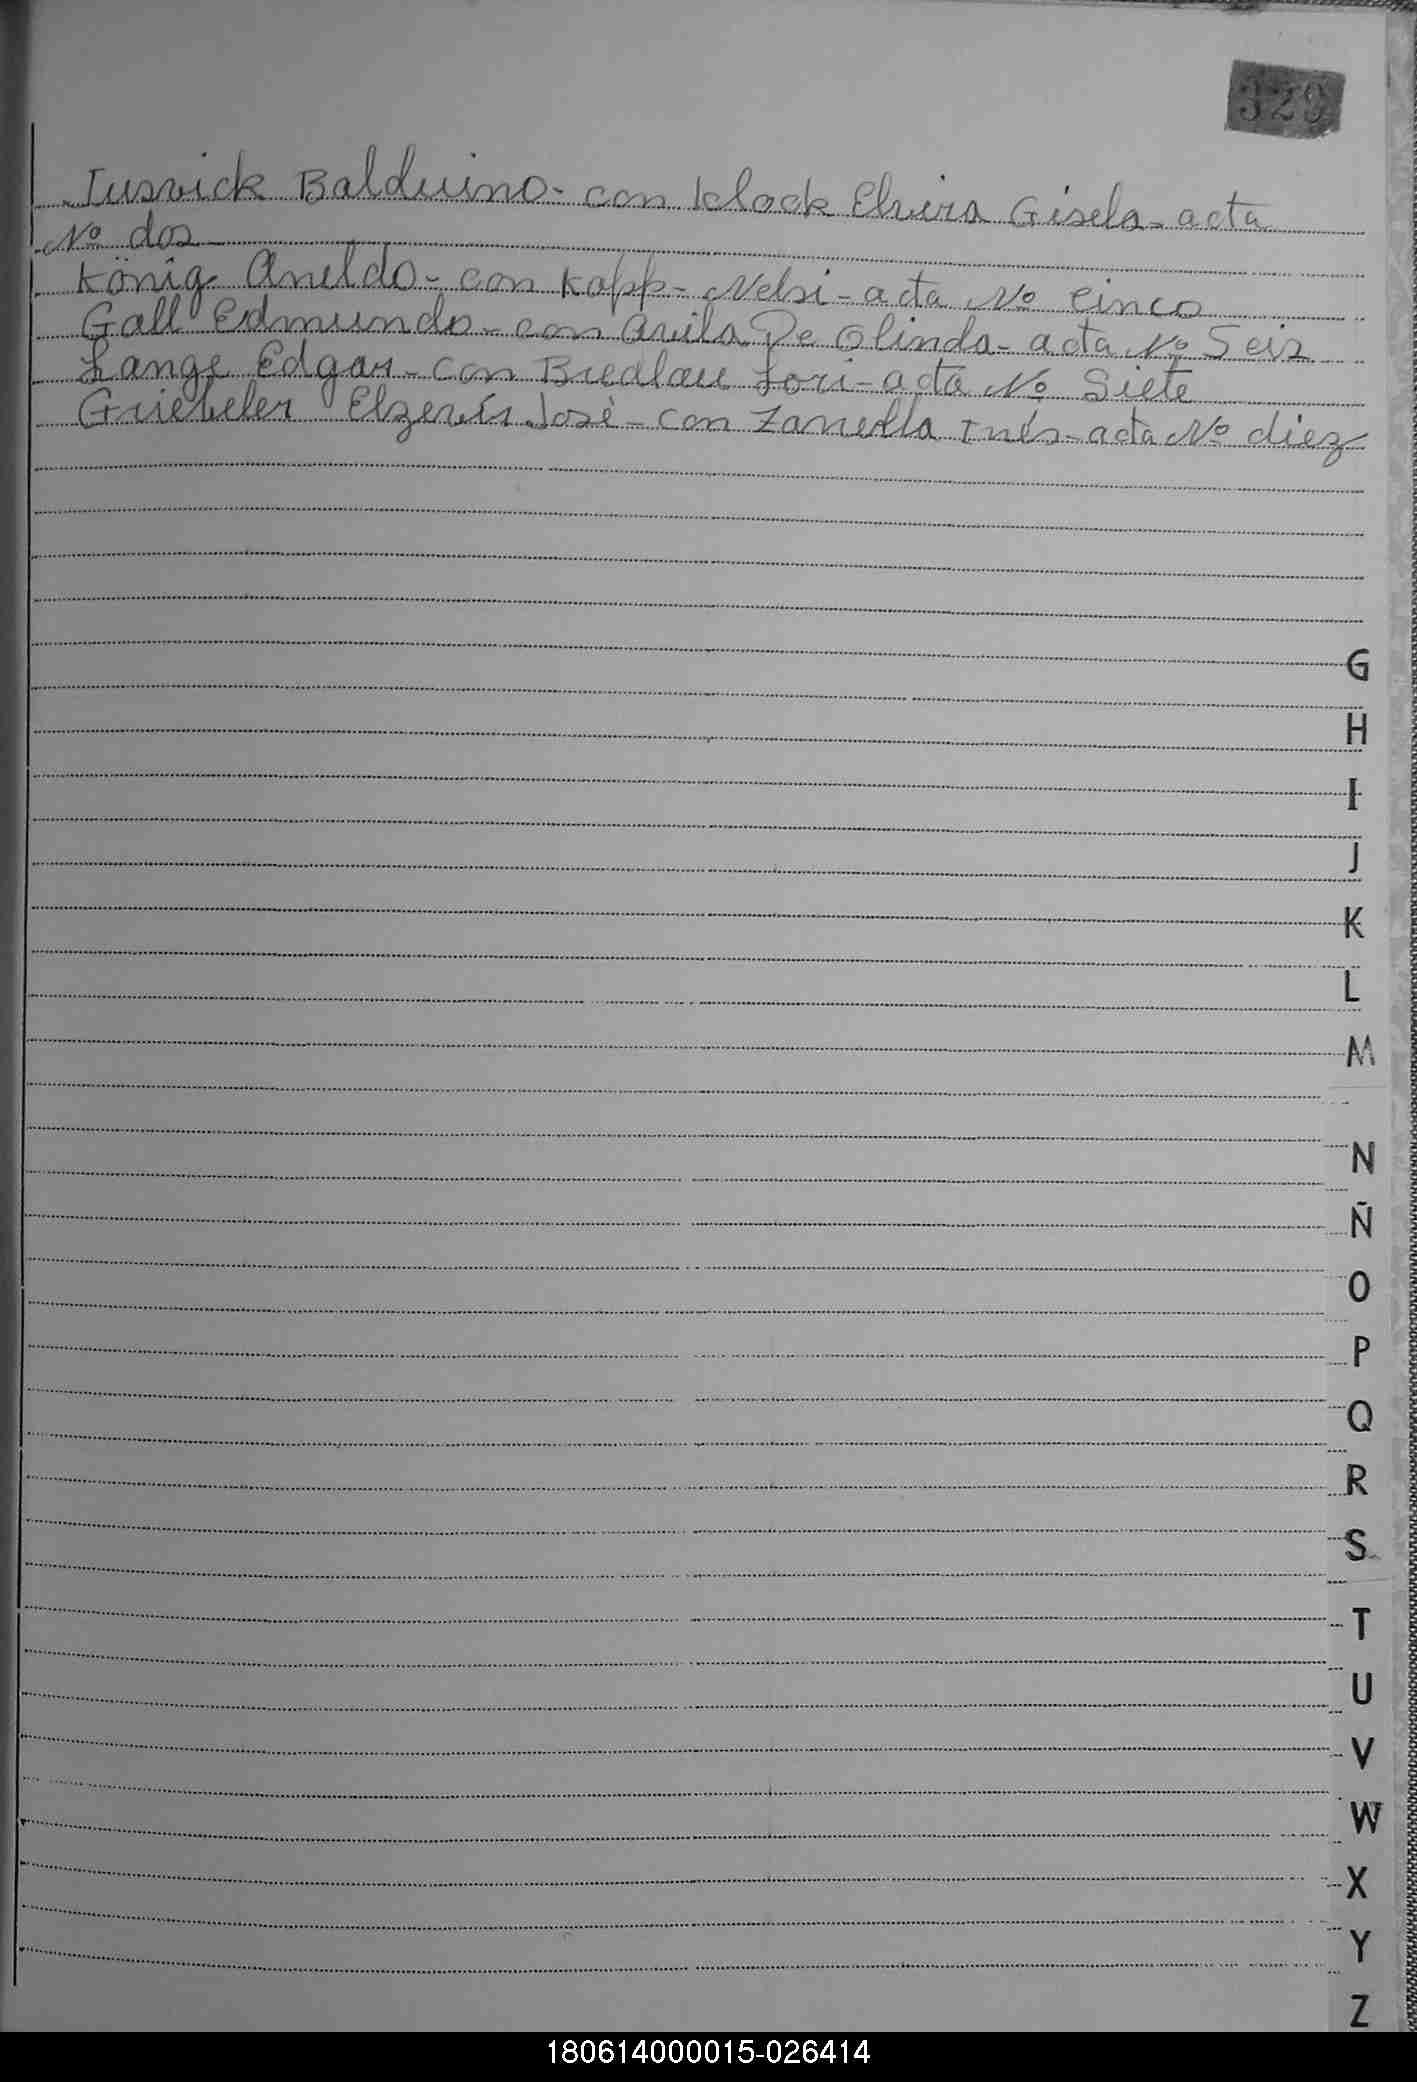 329
Iuswick Balduino - con Klock Elvira Gisela - acta
Nº dos
König Aneldo - con Kopp - Nelsi - acta Nº cinco
Gall Edmundo - con Avila De Olinda - acta Nº Seis
Lange Edgar - con Bredlau Lori - acta Nº Siete
Griebeler Elzevir José - con Zanella Inés - acta Nº diez
G
H
I
J
K
L
M
N
Ñ
O
P
Q
R
S
T
U
V
W
X
Y
Z
180614000015-026414